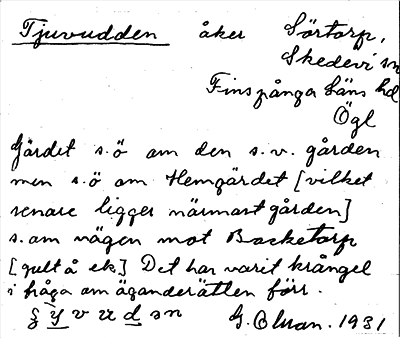 Tjuvudden åker Sörtorp,
Skedevi sn
Finspånga Läns hd
Ögl
Gärdet s.ö om den s.v. gården
men s.ö om Hemgärdet [vilket
senare ligger närmast gården]
s. om vägen mot Backetorp
[gult å ek.] Det har varit krångel
i fråga om äganderätten förr.
G. Olsson. 1931